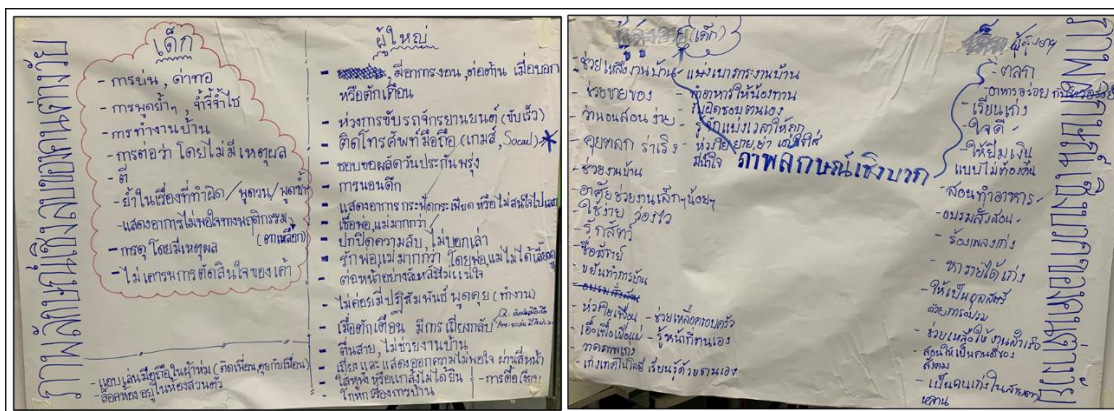 ภาพลักษณ์เชิงลบของคนต่างวัย
เด็ก
- การบ่น, ด่าทอ
- การพูดย้ำๆ จ้ำจี้จ้ำไช
- การทำงานบ้าน
- การต่อว่า โดยไม่มีเหตุผล
- ตี
- ย้ำในเรื่องที่ทำผิด/พูดวน/พูดซ้ำ
- แสดงอาการไม่พอใจทางพฤติกรรม
- การดุ โดยมีเหตุผล
- ไม่เคารพการตัดสินใจของเค้า
- แอบเล่นมือถือในผ้าห่ม (ติดเพื่อน, คุยกับเพื่อน)
- ล็อคห้อง อยู่ในห้องส่วนตัว
ผู้ใหญ่
- มีอาการงอน, ต่อต้าน เมื่อบอก
หรือตักเตือน
- ห่วงการขับรถจักรยานยนต์ (ขับเร็ว)
- ติดโทรศัพท์มือถือ (เกมส์, Social)
- ชอบขอผลัดวันประกันพรุ่ง
- การนอนดึก
- แสดงอาการกระฟัดกระเฟียด หรือไม่สนใจ
- เชื่อพ่อ, แม่มากกว่า
- ปกปิดความลับ, ไม่บอกเล่า
- รักพ่อ, แม่มากกว่า โดยพ่อ, แม่ไม่ได้เลี้ยงดู
- ต่อหน้าอย่างลับหลัง
- ไม่ค่อยมีปฏิสัมพันธ์ พูดคุย (ทำงาน)
- เมื่อตักเตือน มีการเถียงกลับ
- ตื่นสาย, ไม่ช่วยงานบ้าน
- เถียง และ แสดงออกความไม่พอใจ ผ่านสีหน้า
- ใส่หูฟัง หรือแกล้งไม่ได้ยิน - การดื้อ
- โกหก เรื่องการบ้าน
(เด็ก)
- ช่วยเหลืองานบ้าน
- ช่วยขายของ
- ว่านอนสอนง่าย
- คุยตลก ร่าเริง
- ช่วยงานบ้าน
- อาศัยช่วยงานเล็กๆน้อยๆ
- ใช้ง่าย ว่องไว
- รักสัตว์
- ซื่อสัตย์
- ขยันทำการบ้าน
- ห่วงใยเพื่อน - ช่วยเหลือครอบครัว
- เอื้อเฟื้อเผื่อแผ่ - รู้หน้าที่ตนเอง
- วาดภาพเก่ง
- เก่งเทคโนโลยี เรียนรู้ด้วยตนเอง
- แบ่งเบาภาระงานบ้าน
- ทำอาหารให้น้องทาน
- รับผิดชอบตนเอง
- รู้จักแบ่งเวลาให้ถูก
- ห่วงใย ยาย, ย่า เอาใจใส่
มีน้ำใจ
ภาพลักษณ์เชิงบวก
ผู้สูงอายุ
- ตลก
- อาหารอร่อย
- เรียนเก่ง
- ใจดี
- ให้ยืมเงิน
แบบไม่ต้องคืน
- สอนทำอาหาร
- อบรมสั่งสอน
- ร้องเพลงเก่ง
- หารายได้เก่ง
- ให้เป็นกุลสตรี
- ช่วยเหลือให้งานสำเร็จ
- สอนให้เป็นคนดีของ
สังคม
- เป็นคนเก่งในสายตา
หลาน
ภาพลักษณ์เชิงบวกของคนต่างวัย